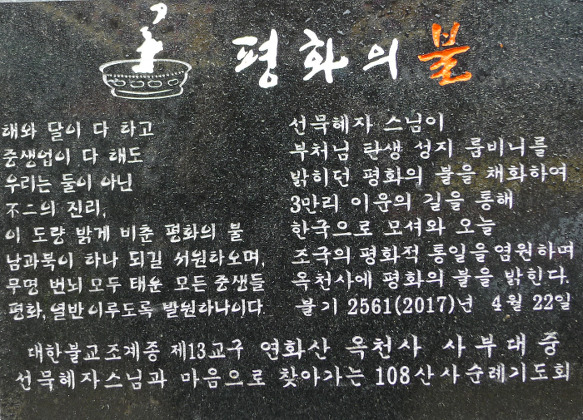 평화의 불
해와 달이 다 타고
중생업이 다 해도
우리는 둘이 아닌
不二의 진리,
이 도량 밝게 비춘 평화의 불
남과북이 하나 되길 서원하오며,
무명 번뇌 모두 태운 모든 중생들
평화, 열반이루도록 발원하나이다.
선묵혜자 스님이
부처님 탄생 성지 룸비니를
밝히던 평화의 불을 채화하여
3만리 이운의 길을 통해
한국으로 모셔와 오늘
조국의 평화적 통일을 염원하며
옥천사에 평화의 불을 밝힌다.
불기 2561(2017)년 4월 22일
대한불교조계종 제13교구 연화산 옥천사 사부대중
선묵혜자스님과 마음으로 찾아가는 108산사순례기도회